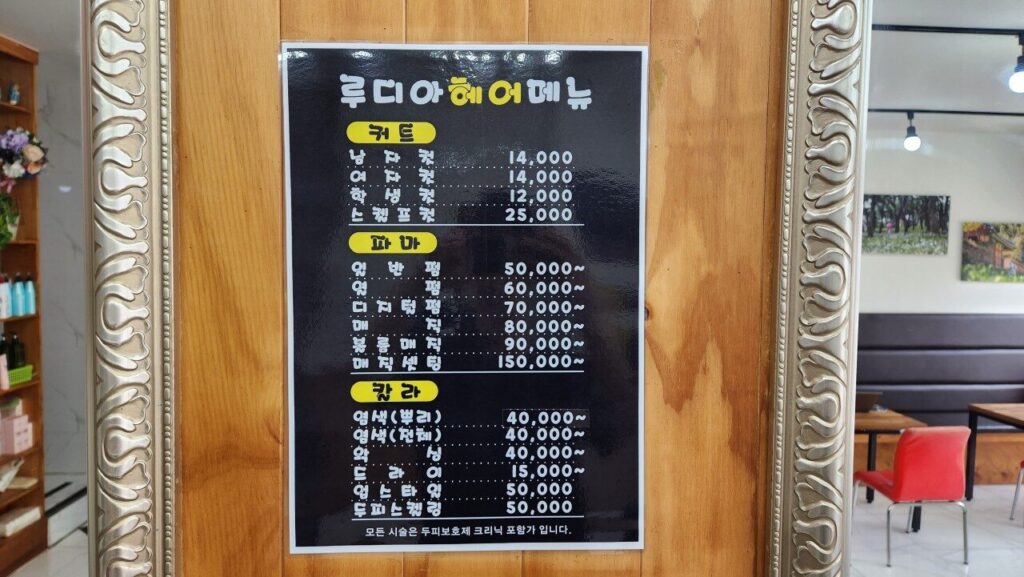 루디아헤어메뉴
커트
남자컷 14,000
여자컷 14,000
학생컷 12,000
스켈프컷 25,000
파마
일반펌 50,000~
열펌 60,000~
디지털펌 70,000~
매직 80,000~
볼륨매직 90,000~
매직셋팅 150,000~
칼라
염색(뿌리) 40,000~
염색(전체) 40,000~
왁싱 40,000~
드라이 15,000~
업스타일 50,000
두피스켈링 50,000
모든 시술은 두피보호제 크리닉 포함가 입니다.